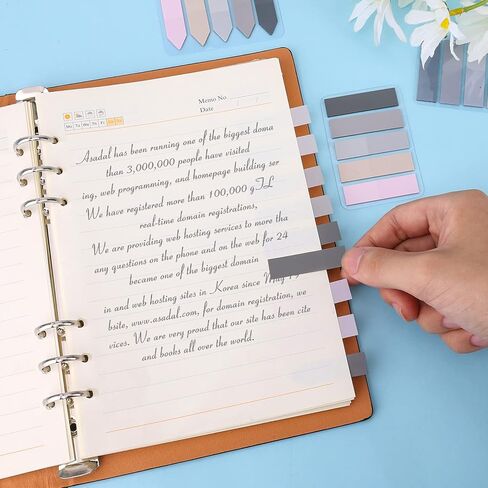 Memo No.
Date / /
Mo Tu We Th Fr Sa Su
Asadal has been running one of the biggest doma
than 3,000,000 people have visited
ing, web programming, and homepage building ser
We have registered more than 100,000 gTL
real-time domain registrations,
We are providing web hosting services to more tha
any questions on the phone and on the web for 24
became one of the biggest domain
in and web hosting sites in Korea since May 19
bsite, www.asadal.com, for domain registration, we
vices. We are very proud that our site has been cite
and books all over the world.